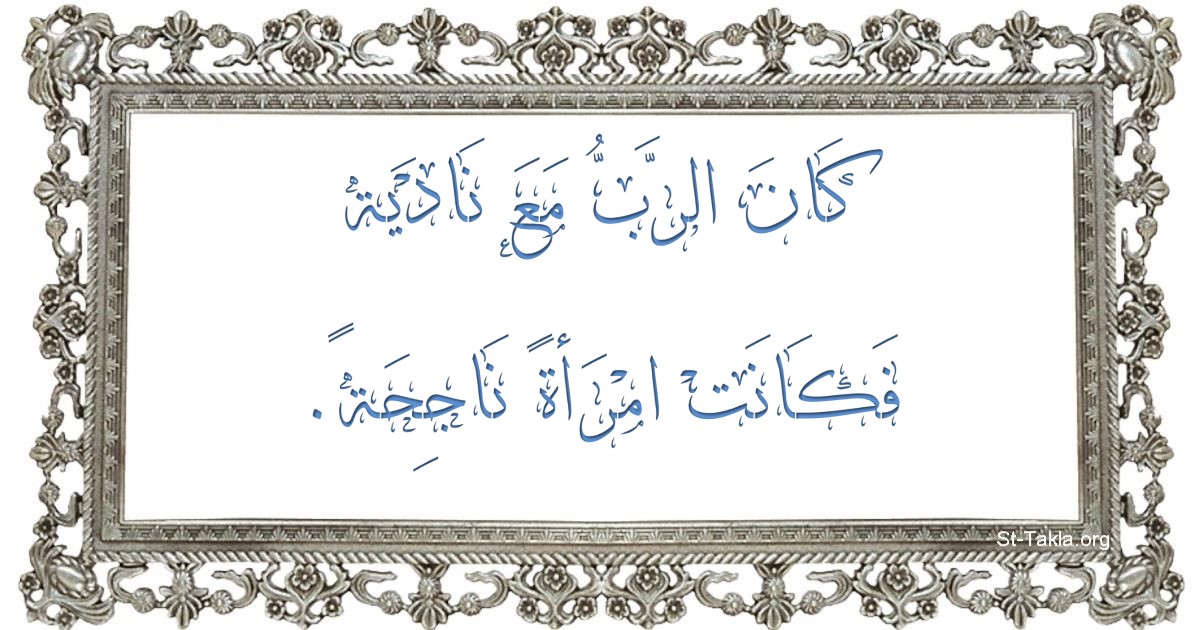 كَانَ الرَّبُّ مَعَ نَادْيَة
فَكَانَتْ امْرَأَةً نَاجِحَةً.
St-Takla.org